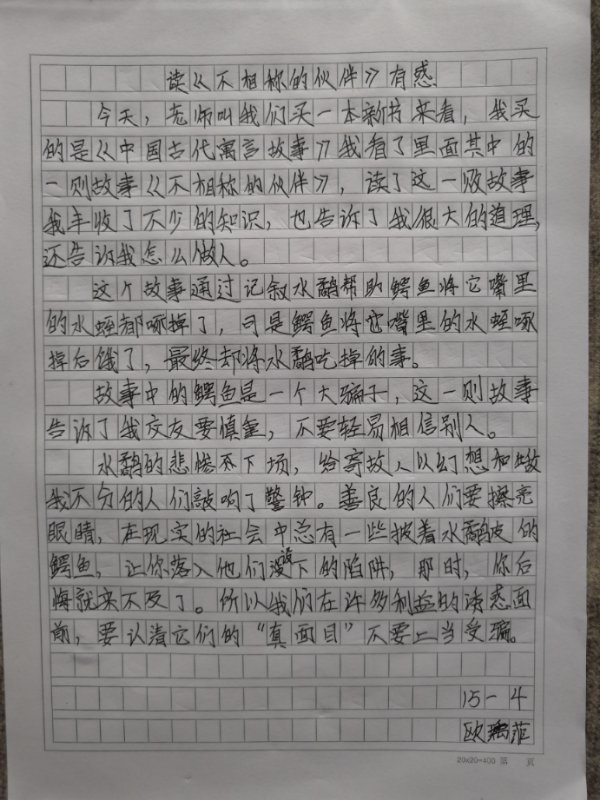 读《不相称的伙伴》有感
今天，老师叫我们买一本新书来看，我买
的是《中国古代寓言故事》我看了里面其中的
一则故事《不相称的伙伴》，读了这一败故事
我丰收了不少的知识，也告诉了我很大的道理，
还告诉我怎么做人。
这个故事通过记叙水鹬帮助鳄鱼将它嘴里
的水蛭都啄掉了，可是鳄鱼将它嘴里的水蛭啄
掉后饿了，最终却将水鹬吃掉的事。
故事中的鳄鱼是一个大骗子，这一则故事
告诉了我交友要慎重，不要轻易相信别人。
水鹬的悲惨下场，给寄敌人以幻想和敌
我不分的人们敲响了警钟。善良的人们要擦亮
眼睛，在现实的社会中总有一些披着水鹬皮的
鳄鱼，让你落入他们设下的陷阱，那时，你后
悔就来不及了。所以我们在许多利益的诱惑面
前，要认清它们的“真面目”不要上当受骗。
15-4
欧瑀菲
20×20=400 第 页